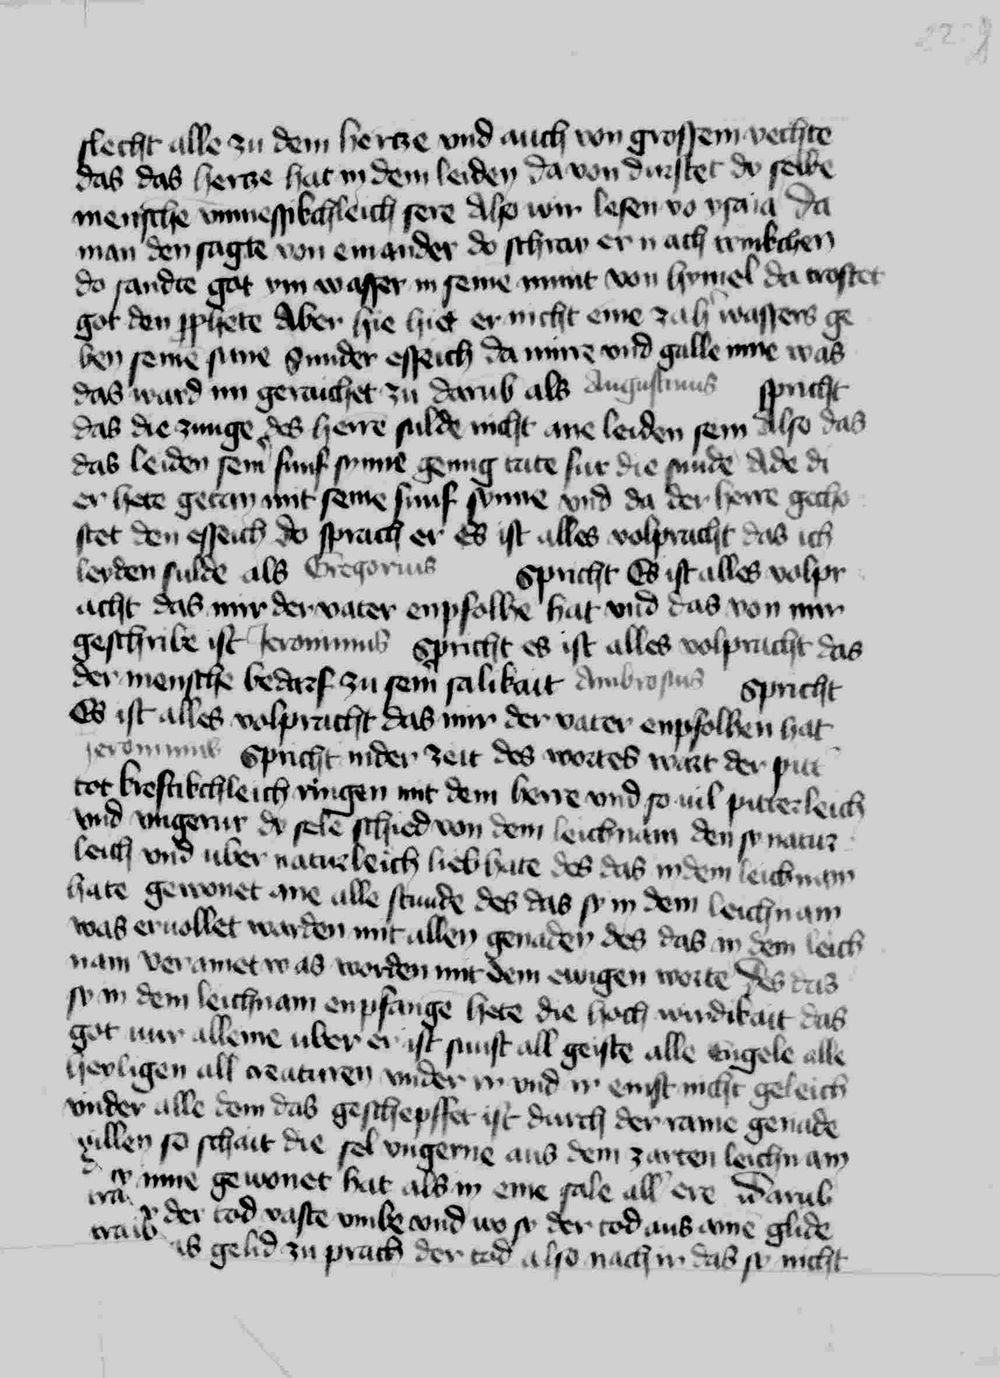 slecht alle zu dem hertze vnd auch von grossem vechte
das das hertze hat in dem leiden da von durstet dy selbe
mensche vnmessikchleich sere Also wir lesen vo ysaia da
man den sagte von einander do schray er nach trinkchen
do sandte got ym wasser in seine munt von hymel da trostet
got den pphete Aber hie hiet er nicht eine zah wassers ge
ben seine sune Sunder esseich da mirre vnd galle inne was
das ward im geraichet zu darub als Augustinus spricht
das die zunge des herre sulde nicht ane leiden sein Also das
das leiden sein funf synne genug tate fur die sunde Ade di
er hete getan mit seine funf synne vnd da der herre gecho
stet den esseich do sprach er Es ist alles volpracht das ich
leyden sulde als Gregorius Spricht Es ist alles volpr
acht das mir der vater enpfolhe hat vnd das von mir
geschribe ist Jeronimus Spricht es ist alles volpracht das
der mensche bedarf zu sein salikait Ambrosius Spricht
Es ist alles volpracht das mir der vater enpfolhen hat
Jeronimus Spricht in der zeit des wortes wart der pitt
tot kreftikchleich ringen mit dem herre vnd so vil pitterleich
vnd vngerur dy sele schied von dem leichnam den sy natur
leich vnd uber naturleich lieb hate des das in dem leichnam
hate gewonet ane alle stunde des das sy in dem leichnam
was ervollet warden mit allen genaden des das in dem leich
nam verainet was worden mit dem ewigen worte Des das
sy in dem leichnam enpfange hete die hoch wirdikait das
got nur alleine uber er ist sunst all geiste alle Engele alle
heyligen all creaturen vnder ir vnd ir einst nicht geleich
vnder alle dem das geschepffet ist durch der rame genade
willen so schait die sel vngerne aus dem zarten leichnam
sy inne gewonet hat als in eine sale all ere Darub
der tod vaste vmbe vnd wo sy der tod aus aine glide
traib as gelid zu prach der tod also nach ir das sy nicht